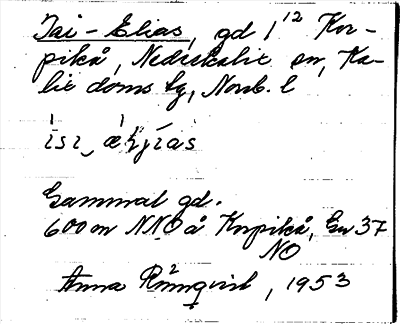 Isi-Elias, gd 1¹² Kor-
pikå, Nederkalix sn, Ka-
lix doms tg, Norrb. l
Gammal gd.
600 m NNO å Korpikå, Gu 37
NO
Anna Rönnqvist, 1953